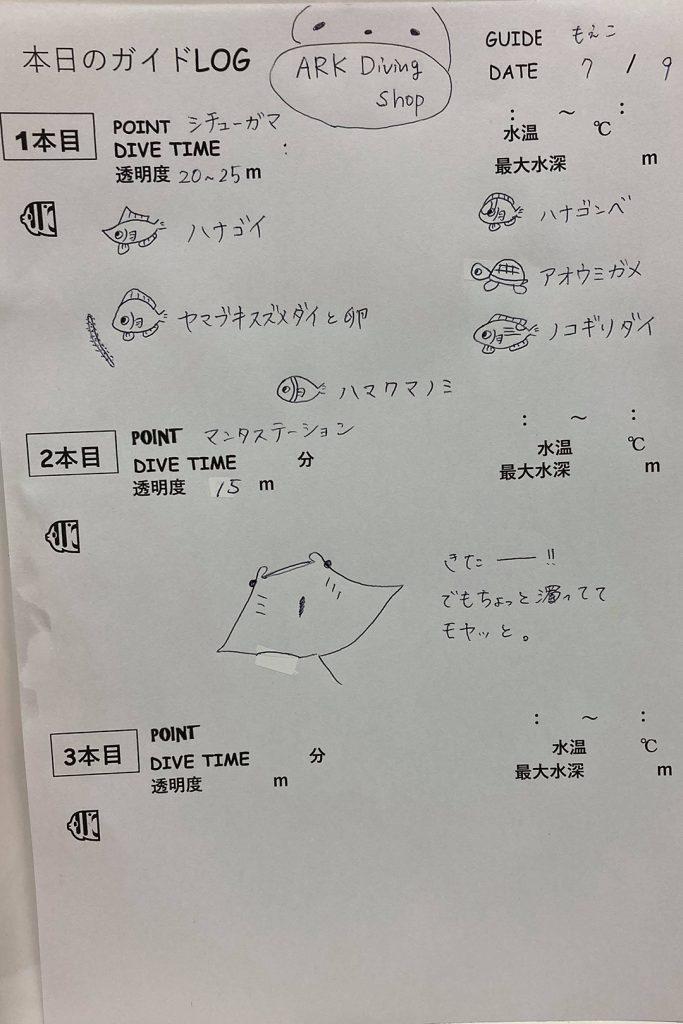 本日のガイドLOG
ARK Diving
Shop
GUIDE もえこ
DATE 7 / 9
1本目
POINT シチューガマ
DIVE TIME :
透明度 20~25m
: ~ :
水温 ℃
最大水深 m
ハナゴイ
ハナゴンベ
アオウミガメ
ヤマブキスズメダイと卵
ノコギリダイ
ハマクマノミ
2本目
POINT マンタステーション
DIVE TIME 分
透明度 15 m
: ~ :
水温 ℃
最大水深 m
きたー!!
でもちょっと濁ってて
モヤッと。
3本目
POINT
DIVE TIME 分
透明度 m
: ~ :
水温 ℃
最大水深 m